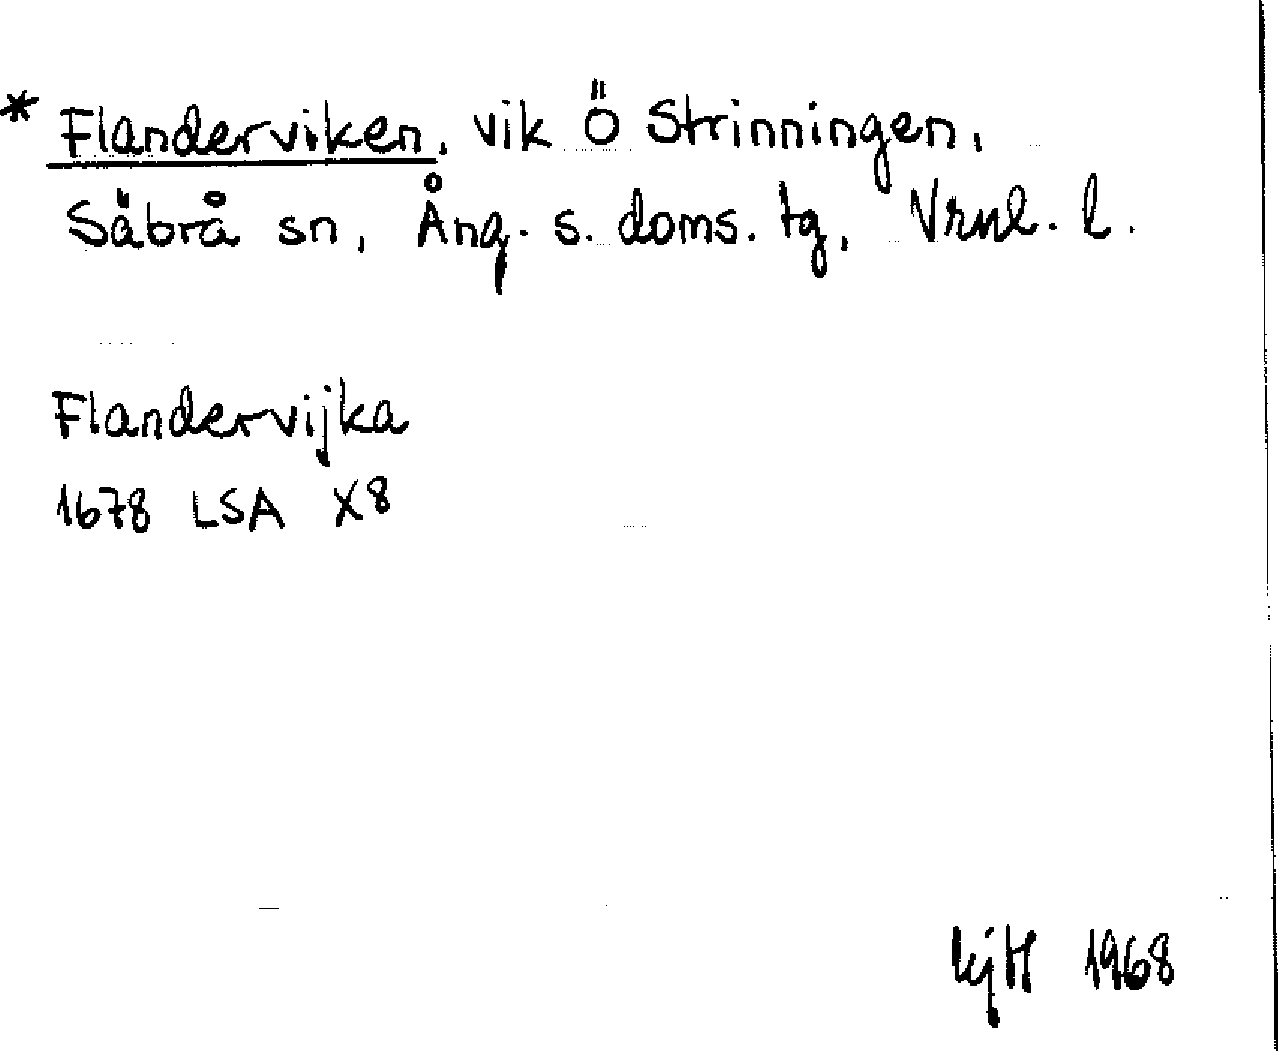 * Flanderviken, vik Ö Strinningen,
Säbrå sn, Ång. s. doms. tg, Vrnl. l.
Flandervijka
1678 LSA X8
1968